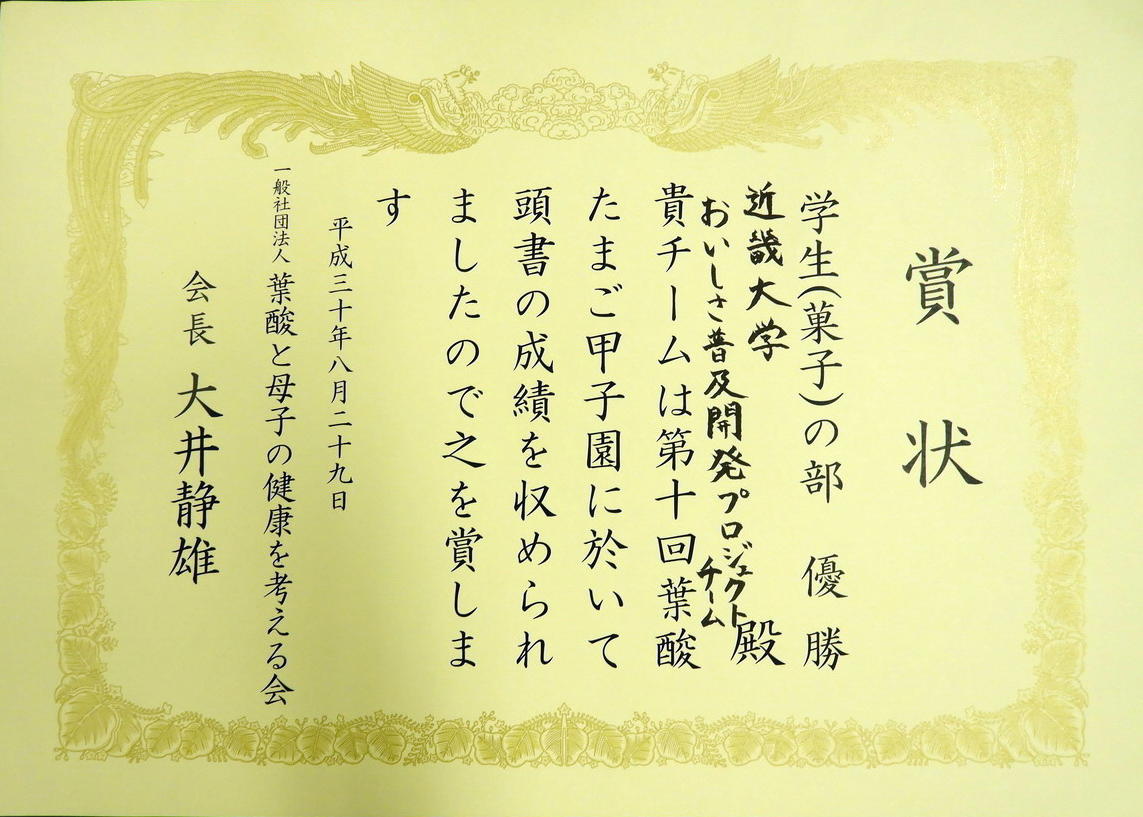 賞状
学生(菓子)の部 優勝
近畿大学
おいしさ普及開発プロジェクト
チーム
殿
貴チームは第十回葉酸
たまご甲子園に於いて
頭書の成績を収められ
ましたので之を賞しま
す
平成三十年八月二十九日
一般社団法人 葉酸と母子の健康を考える会
会長 大井静雄